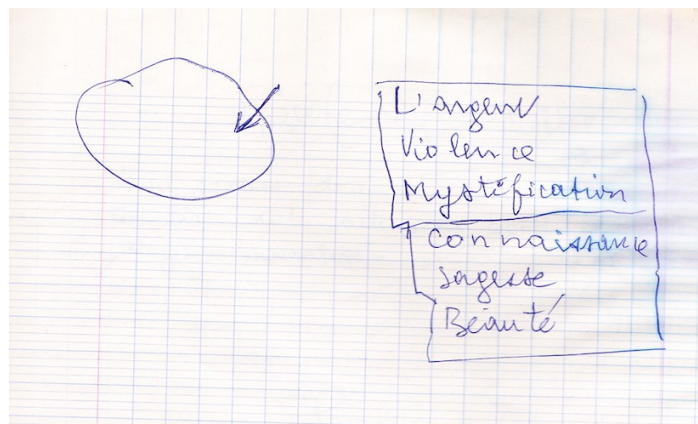 L'argent
Violence
Mystéfication
Connaissance
Sagesse
Béauté